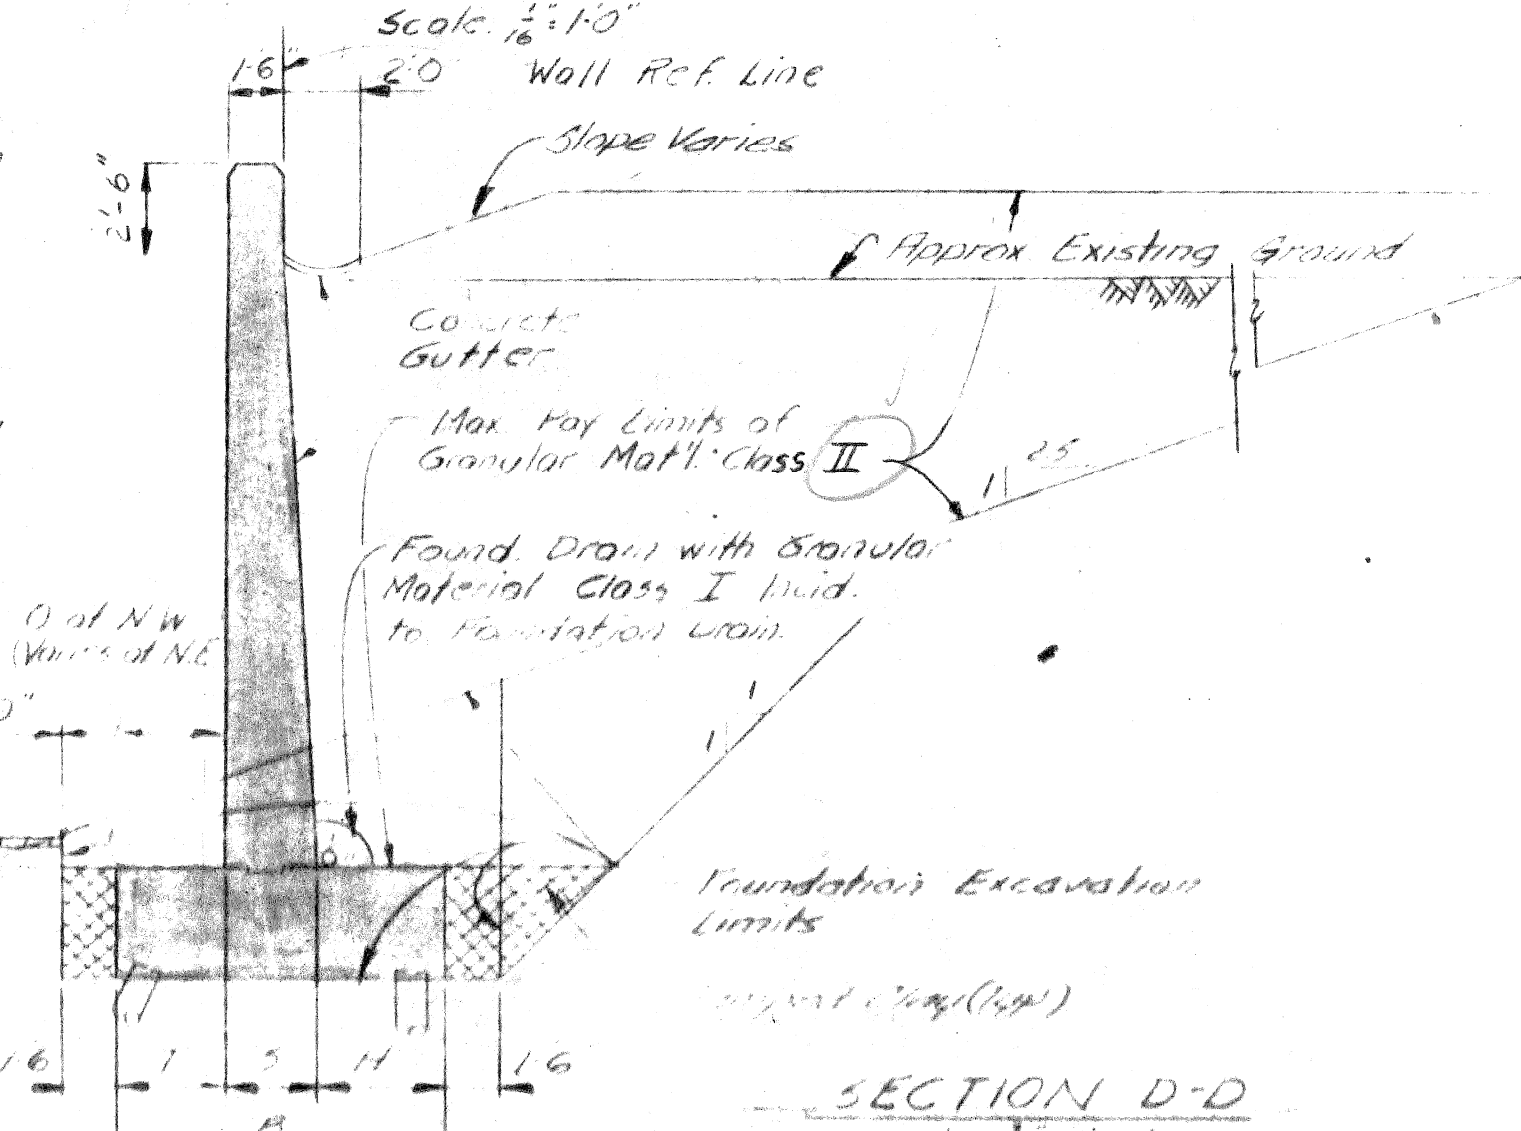 Scale. 1/16" = 1'-0"
1'-6"
2'-0
Wall Ref. Line
Slope Varies
2'-6"
Approx Existing Ground
Concrete
Gutter
Max Pay Limits of
Granular Mat'l. Class II
2.5
1
Found. Drain with Granular
Material Class I Incid.
to Foundation Drain.
0 at N W
(Varies at N.E
0"
1
1
Foundation Excavation
Limits
(Typ)
1-6
T
S
H
1-6
B
SECTION D-D